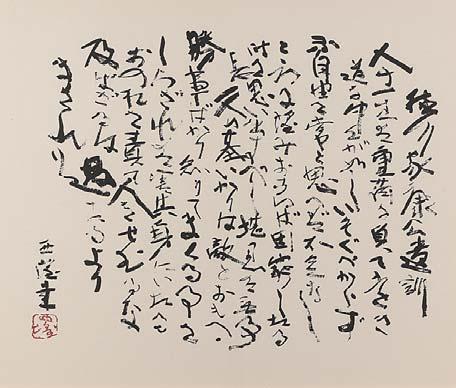 徳川家康公遺訓
人の一生は重荷を負て遠き
道を行くがごとしいそぐべからず
不自由を常と思へば不足なし
こころに望みおこらば困窮したる
時を思ひ出すべし堪忍は無事
長久の基いかりは敵とおもへ
勝事ばかり知りてまくる事を
しらざれば害其身にいたる
おのれを責て人をせむるな
及ばざるは過たるより
まされり
西逕書